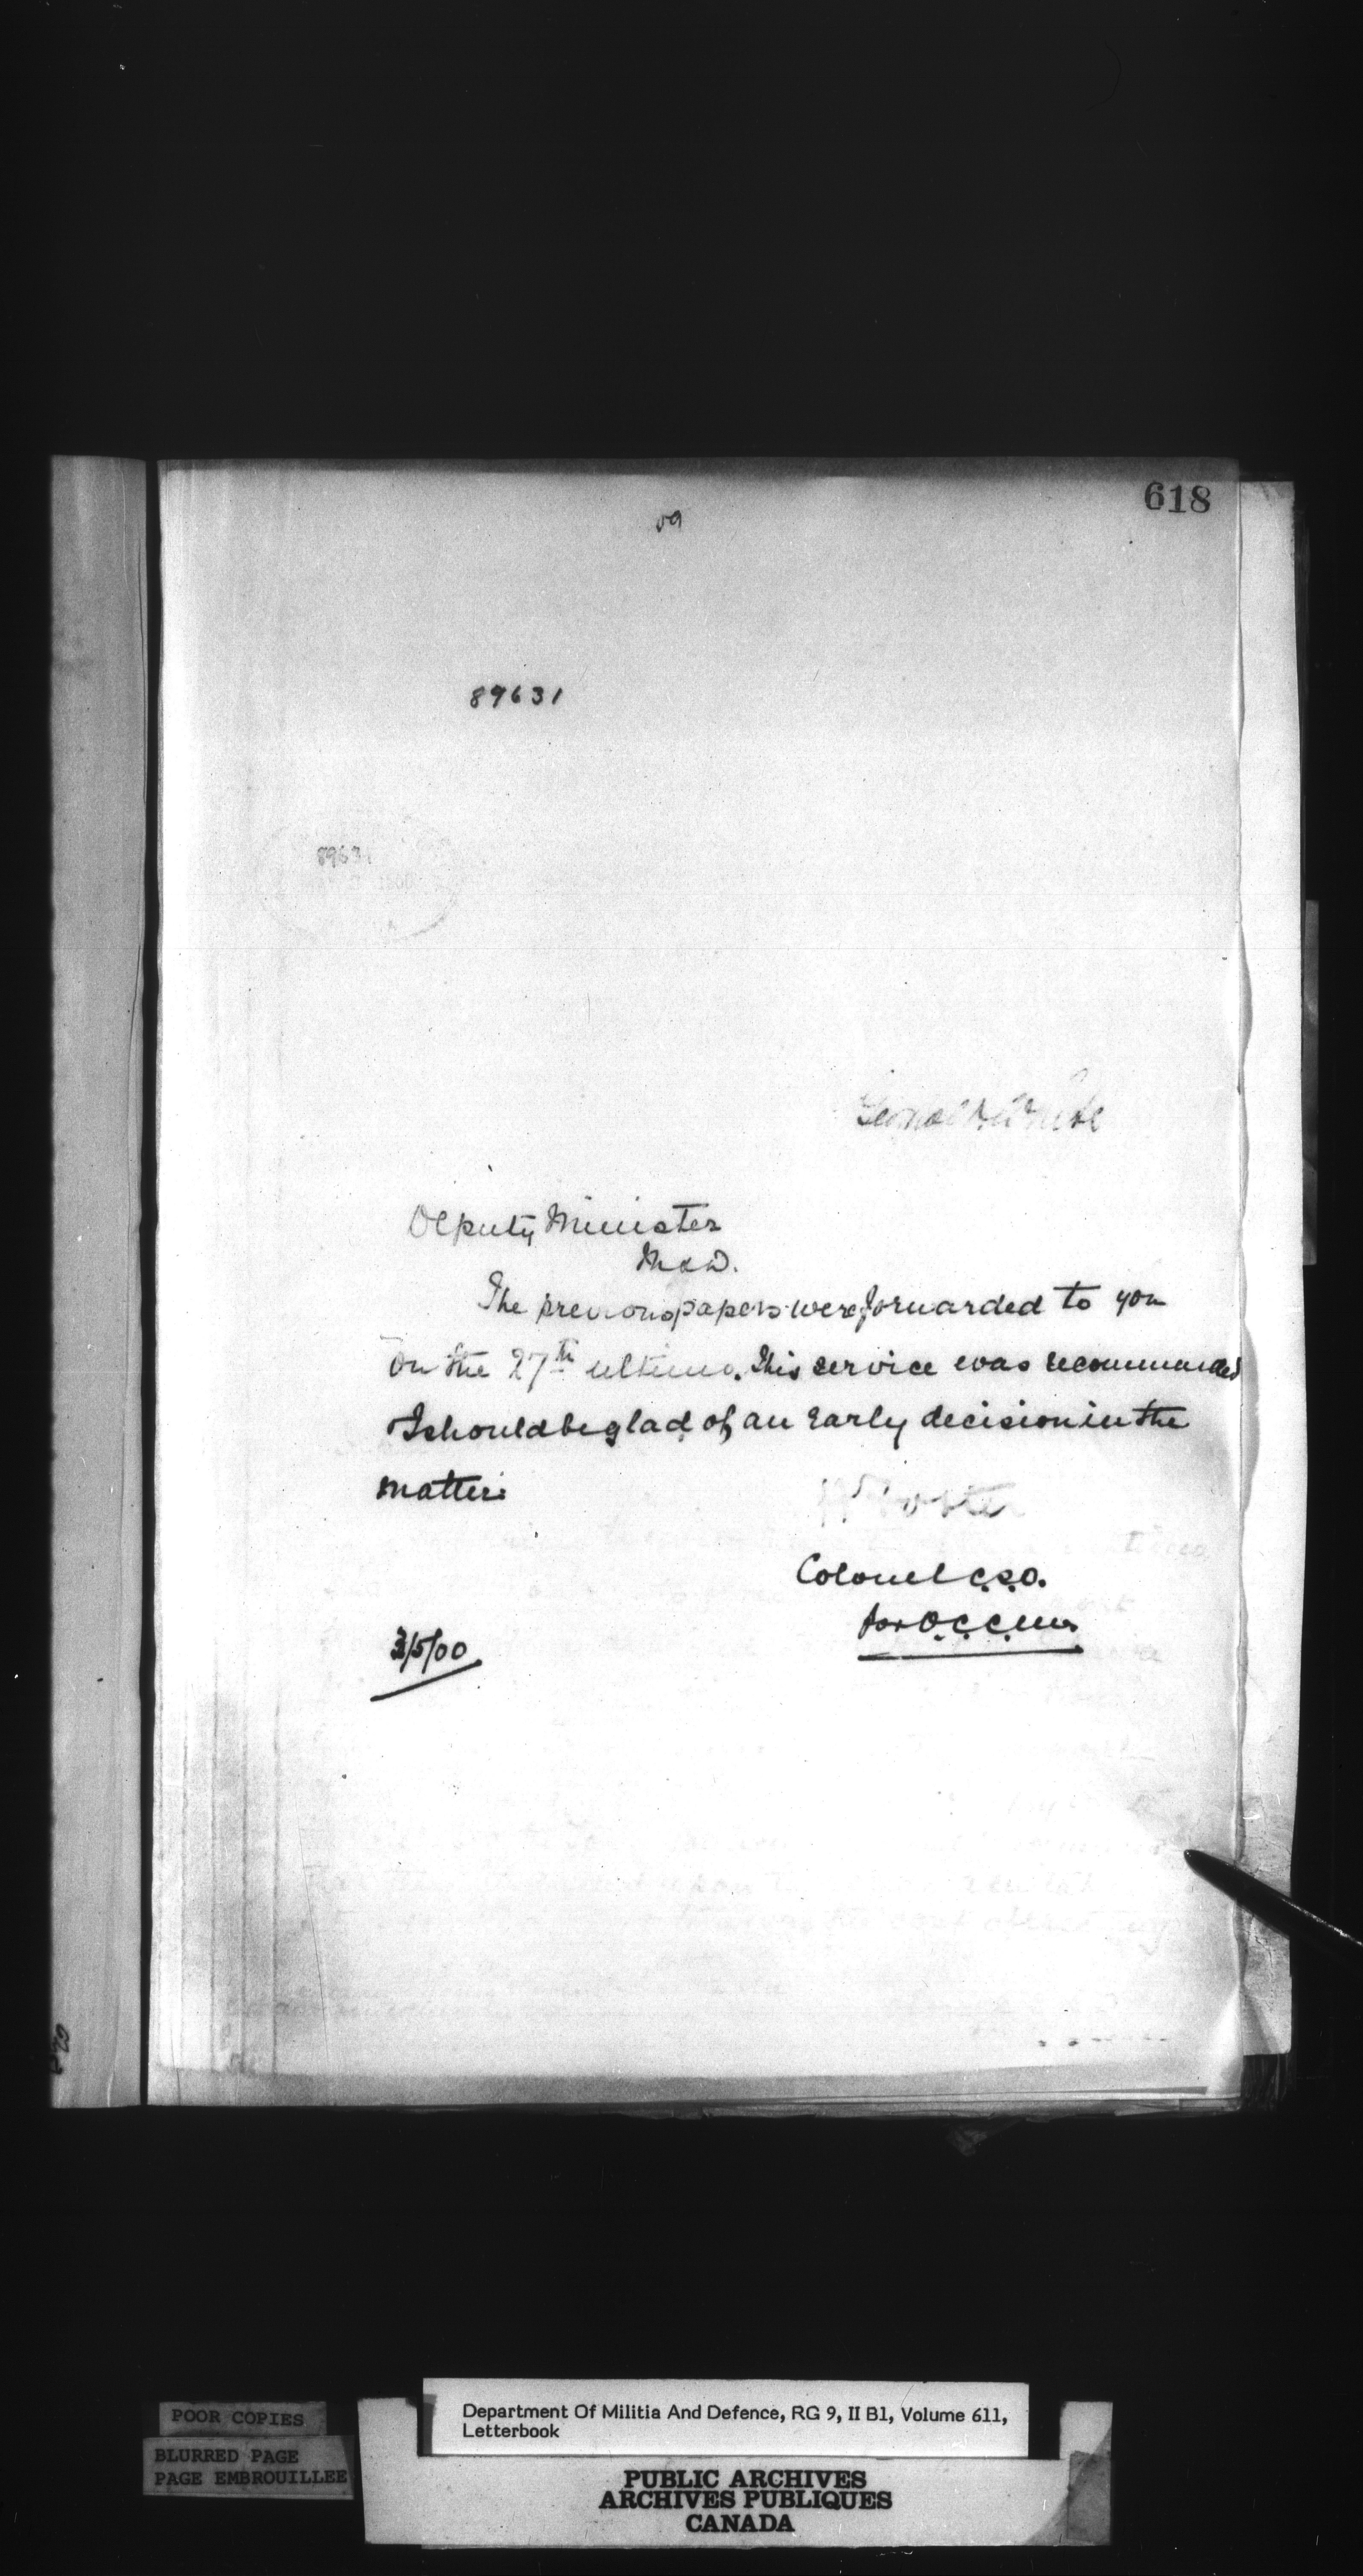 618
89631
8963
Deputy Minister
M & D.
The previous papers were forwarded to you
on the 27th ultimo. This service was recommended
I should be glad of an early decision in the
matter.
Foster
Colonel C.S.O.
for O.C.C.M.
3/5/00
POOR COPIES
BLURRED PAGE
PAGE EMBROUILLEE
Department Of Militia And Defence, RG 9, II B1, Volume 611,
Letterbook
PUBLIC ARCHIVES
ARCHIVES PUBLIQUES
CANADA